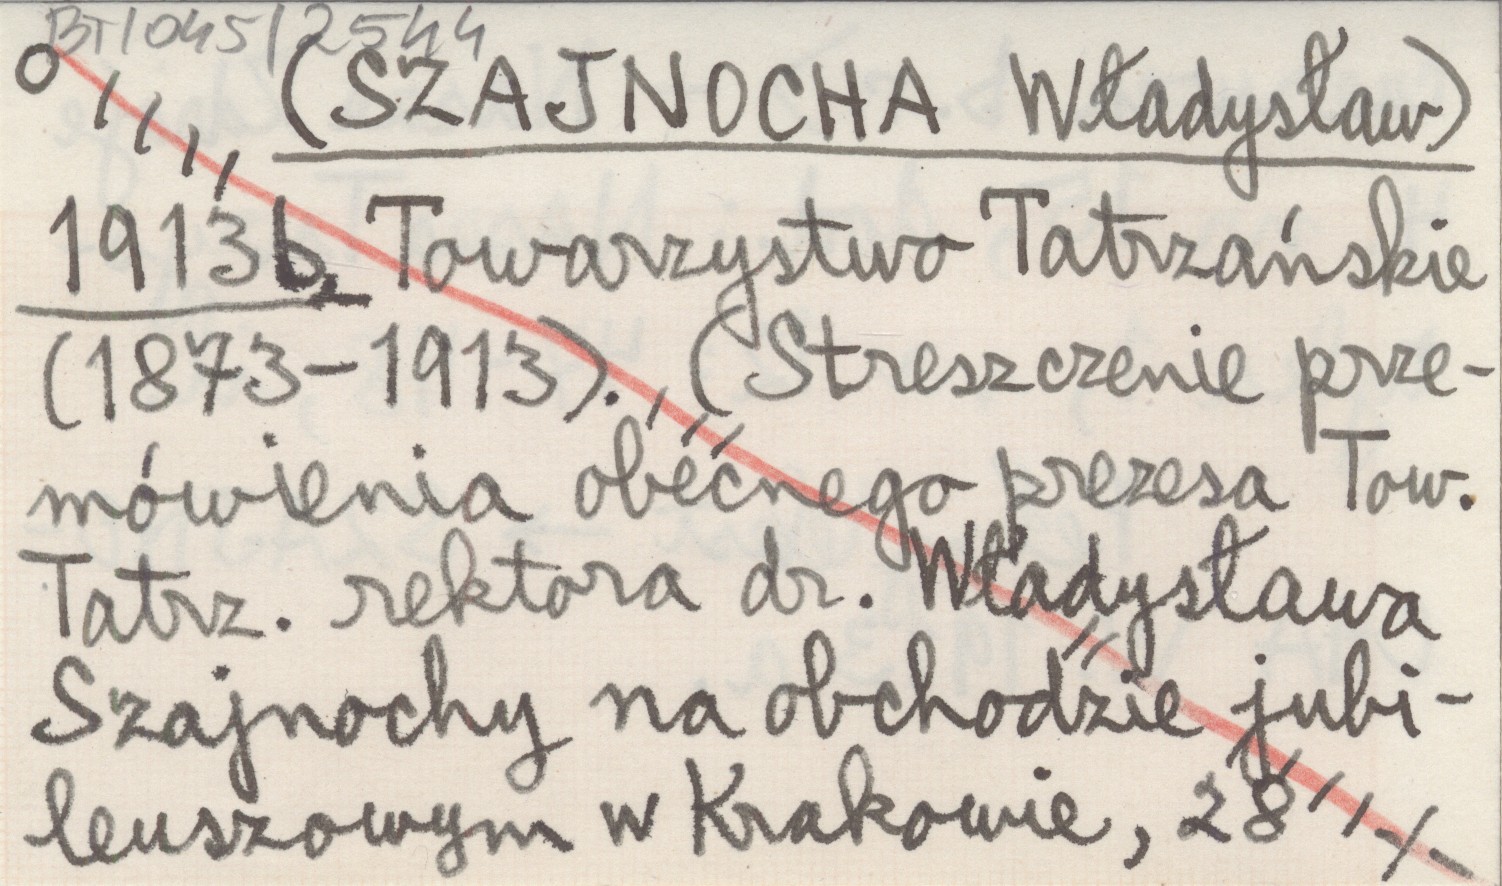 BT/045/2544
(SZAJNOCHA Władysław)
1913b. Towarzystwo Tatrzańskie
(1873-1913). (Streszczenie prze-
mówienia obecnego prezesa Tow.
Tatrz. rektora dr. Władysława
Szajnochy na obchodzie jubi-
leuszowym w Krakowie, 28